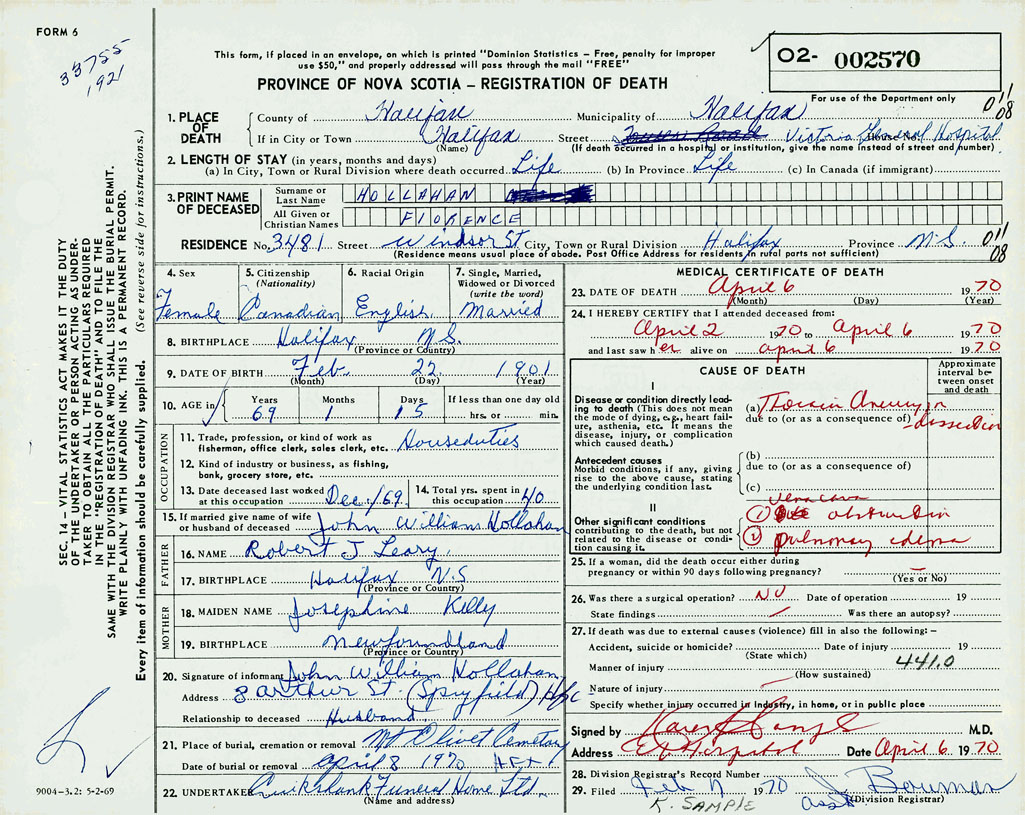 FORM 6
33755
1921
This form, if placed in an envelope, on which is printed "Dominion Statistics – Free, penalty for improper
use $50," and properly addressed will pass through the mail "FREE"
PROVINCE OF NOVA SCOTIA – REGISTRATION OF DEATH
O2- 002570
For use of the Department only
011
08
1. PLACE OF DEATH
County of Halifax Municipality of Halifax
If in City or Town Halifax Street Victoria General Hospital
(Name) (If death occurred in a hospital or institution, give the name instead of street and number)
2. LENGTH OF STAY (in years, months and days)
(a) In City, Town or Rural Division where death occurred Life (b) In Province Life (c) In Canada (if immigrant)
3. PRINT NAME OF DECEASED
Surname or Last Name HOLLAHAN
All Given or Christian Names FLORENCE
RESIDENCE No. 3481 Street Windsor St City, Town or Rural Division Halifax Province N.S. 011
08
(Residence means usual place of abode. Post Office Address for residents in rural parts not sufficient)
4. Sex
Female
5. Citizenship
(Nationality)
Canadian
6. Racial Origin
English
7. Single, Married,
Widowed or Divorced
(write the word)
Married
8. BIRTHPLACE Halifax N.S.
(Province or Country)
9. DATE OF BIRTH Feb. 22 1901
(Month) (Day) (Year)
10. AGE in
Years Months Days If less than one day old
69 1 15 hrs. or min.
OCCUPATION
11. Trade, profession, or kind of work as
fisherman, office clerk, sales clerk, etc. Houseduties
12. Kind of industry or business, as fishing,
bank, grocery store, etc.
13. Date deceased last worked
at this occupation Dec./69
14. Total yrs. spent in
this occupation 40
15. If married give name of wife
or husband of deceased John William Hollahan
FATHER
16. NAME Robert J. Leary
17. BIRTHPLACE Halifax N.S
(Province or Country)
MOTHER
18. MAIDEN NAME Josephine Kelly
19. BIRTHPLACE Newfoundland
(Province or Country)
20. Signature of informant John William Hollahan
Address 8 Arthur St. (Spryfield) Hfx
Relationship to deceased Husband.
21. Place of burial, cremation or removal Mt Olivet Cemetary
Date of burial or removal April 8 1970
22. UNDERTAKER Cruikshank Funeral Home Ltd.
(Name and address)
MEDICAL CERTIFICATE OF DEATH
23. DATE OF DEATH April 6 1970
(Month) (Day) (Year)
24. I HEREBY CERTIFY that I attended deceased from:
April 2 1970 to April 6 1970
and last saw her alive on April 6 1970
CAUSE OF DEATH
Approximate
interval be-
tween onset
and death
I
Disease or condition directly lead-
ing to death (This does not mean
the mode of dying, e.g., heart fail-
ure, asthenia, etc. It means the
disease, injury, or complication
which caused death.)
(a) Thoracic Aneurysm
due to (or as a consequence of)
– dissection
Antecedent causes
Morbid conditions, if any, giving
rise to the above cause, stating
the underlying condition last.
(b)
due to (or as a consequence of)
(c)
II
Other significant conditions
contributing to the death, but not
related to the disease or condi-
tion causing it.
vena cava
1 obstruction
2 pulmonary edema
25. If a woman, did the death occur either during
pregnancy or within 90 days following pregnancy? –
(Yes or No)
26. Was there a surgical operation? NO Date of operation 19
State findings Was there an autopsy?
27. If death was due to external causes (violence) fill in also the following: –
Accident, suicide or homicide? Date of injury 19
(State which) 441.0
Manner of injury
(How sustained)
Nature of injury
Specify whether injury occurred in Industry, in home, or in public place
Signed by M.D.
Address Hospital Date April 6 1970
28. Division Registrar's Record Number
29. Filed 1970 J. Bowman
K. SAMPLE asst (Division Registrar)
SEC. 14 – VITAL STATISTICS ACT MAKES IT THE DUTY
OF THE UNDERTAKER OR PERSON ACTING AS UNDER-
TAKER TO OBTAIN ALL THE PARTICULARS REQUIRED
IN THE "REGISTRATION OF DEATH" AND TO FILE THE
SAME WITH THE DIVISION REGISTRAR WHO SHALL ISSUE THE BURIAL PERMIT.
WRITE PLAINLY WITH UNFADING INK. THIS IS A PERMANENT RECORD.
Every item of information should be carefully supplied. (See reverse side for instructions.)
9004–3.2: 5-2-69